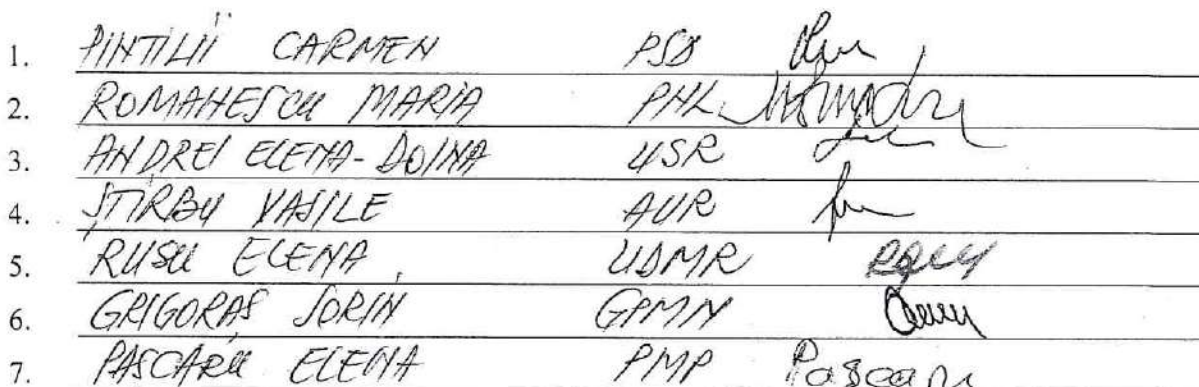 1. PINTILII CARMEN PSD
2. ROMANESCU MARIA PNL
3. ANDREI ELENA-DOINA USR
4. ȘTIRBU VASILE AUR
5. RUSU ELENA UDMR
6. GRIGORAȘ SORIN GPMN
7. PASCARU ELENA PMP Pascaru